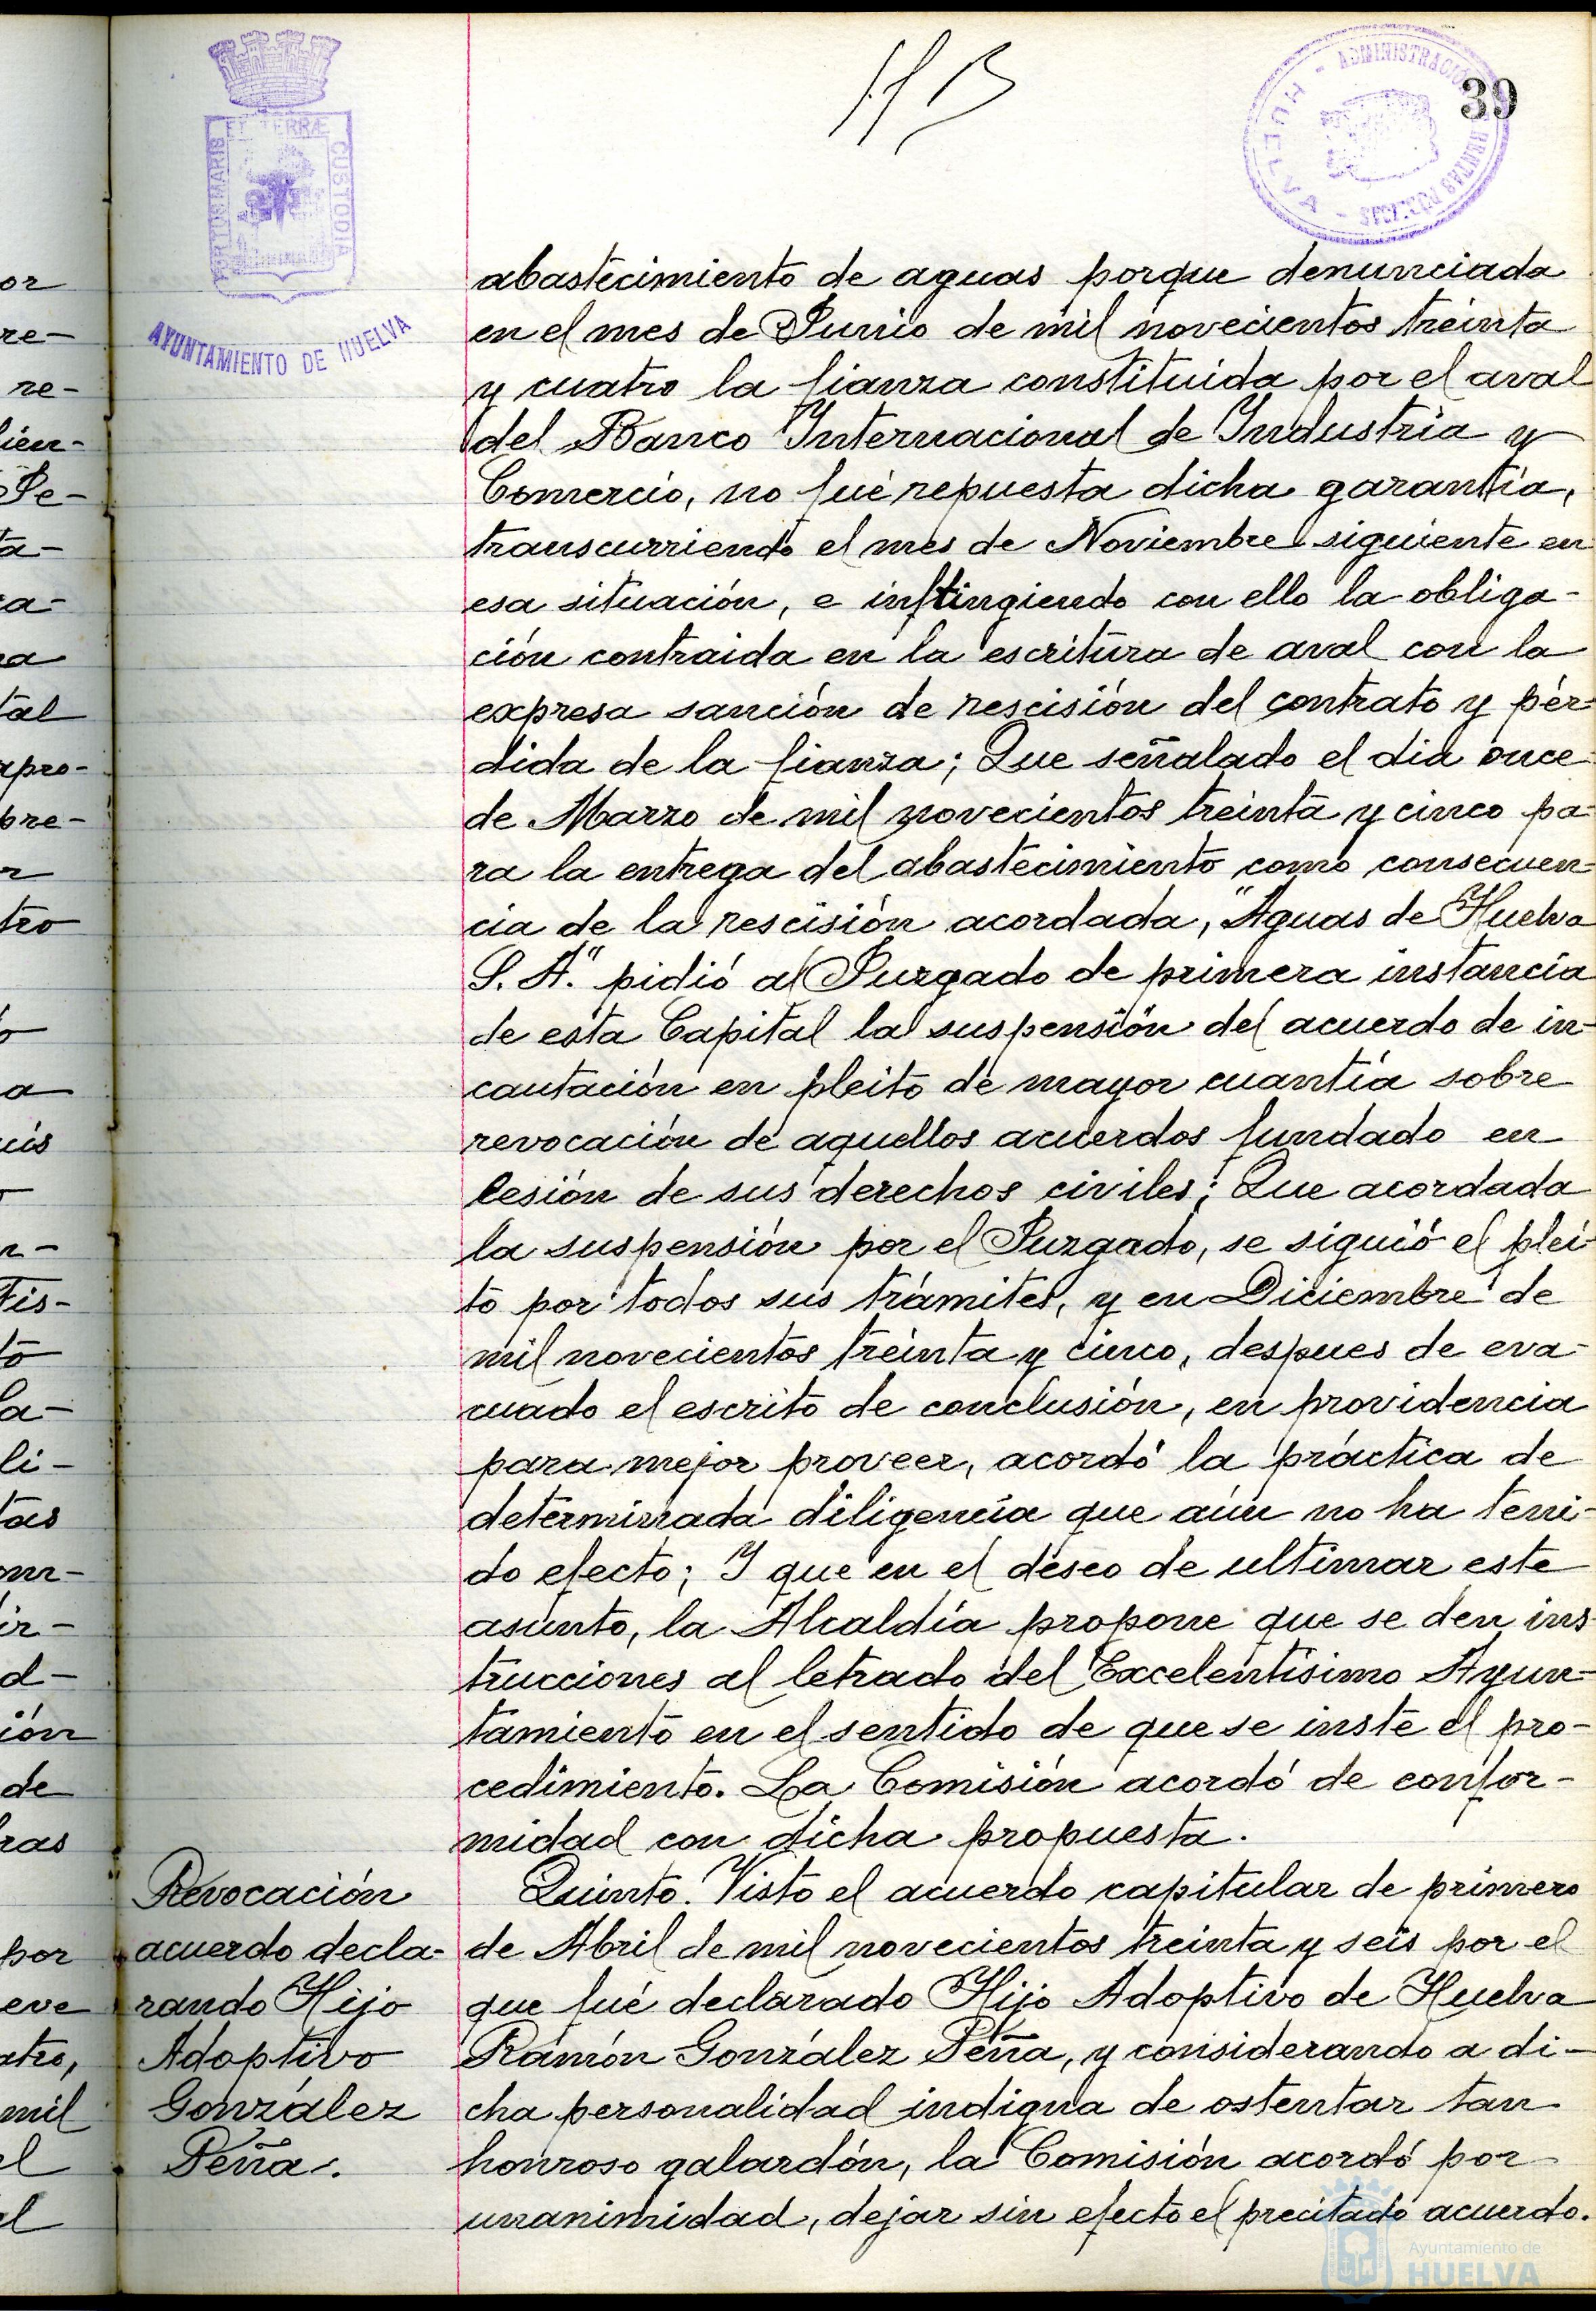 39
PORTUS MARIS ET TERRÆ CUSTODIA
AYUNTAMIENTO DE HUELVA
ADMINISTRACIÓN
HUELVA
abastecimiento de aguas porque denunciada
en el mes de Junio de mil novecientos treinta
y cuatro la fianza constituida por el aval
del Banco Internacional de Industria y
Comercio, no fué repuesta dicha garantía,
transcurriendo el mes de Noviembre siguiente en
esa situación, e infringiendo con ello la obliga-
ción contraida en la escritura de aval con la
expresa sanción de rescisión del contrato y pér-
dida de la fianza; Que señalado el dia once
de Marzo de mil novecientos treinta y cinco pa-
ra la entrega del abastecimiento como consecuen-
cia de la rescisión acordada, "Aguas de Huelva
S. A." pidió al Juzgado de primera instancia
de esta Capital la suspensión del acuerdo de in-
cautación en pleito de mayor cuantía sobre
revocación de aquellos acuerdos fundado en
lesión de sus derechos civiles; Que acordada
la suspensión por el Juzgado, se siguió el plei-
to por todos sus trámites, y en Diciembre de
mil novecientos treinta y cinco, despues de eva-
cuado el escrito de conclusión, en providencia
para mejor proveer, acordó la práctica de
determinada diligencia que aún no ha teni-
do efecto; Y que en el deseo de ultimar este
asunto, la Alcaldía propone que se den ins-
trucciones al letrado del Excelentísimo Ayun-
tamiento en el sentido de que se inste el pro-
cedimiento. La Comisión acordó de confor-
midad con dicha propuesta.
Revocación
acuerdo decla-
rando Hijo
Adoptivo
González
Peña.
Quinto. Visto el acuerdo capitular de primero
de Abril de mil novecientos treinta y seis por el
que fué declarado Hijo Adoptivo de Huelva
Ramón González Peña, y considerando a di-
cha personalidad indigna de ostentar tan
honroso galardón, la Comisión acordó por
unanimidad, dejar sin efecto el precitado acuerdo.
Ayuntamiento de
HUELVA